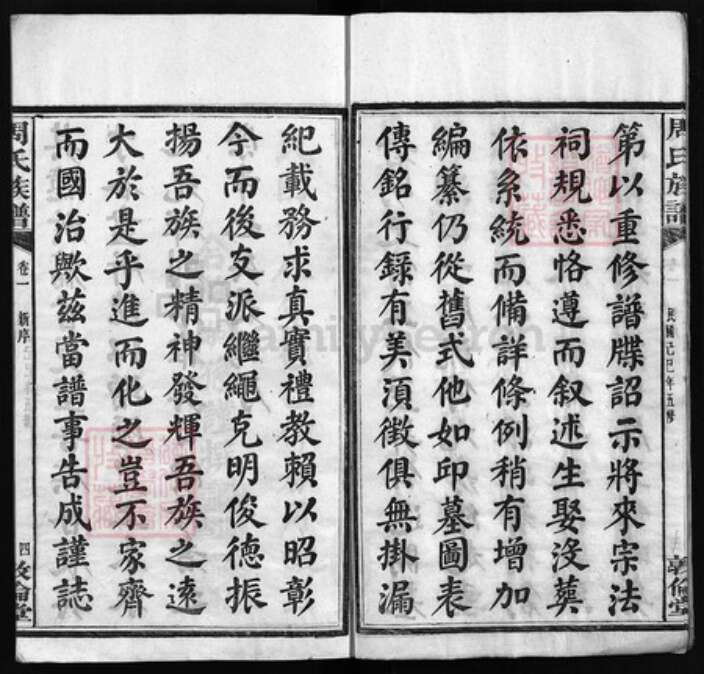 周氏族譜
民國己巳年五修
敦倫堂
第以重修譜牒詔示將來宗法
祠規悉恪遵而叙述生娶没葬
依系統而備詳條例稍有增加
編纂仍從舊式他如邱墓圖表
傳銘行録有美須徵俱無掛漏
紀載務求真實禮教賴以昭彰
今而後支派繼繩克明俊德振
揚吾族之精神發輝吾族之遠
大於是乎進而化之豈不家齊
而國治歟兹當譜事告成謹誌
周氏族譜
卷一
新序
四
敦倫堂
FamilySearch